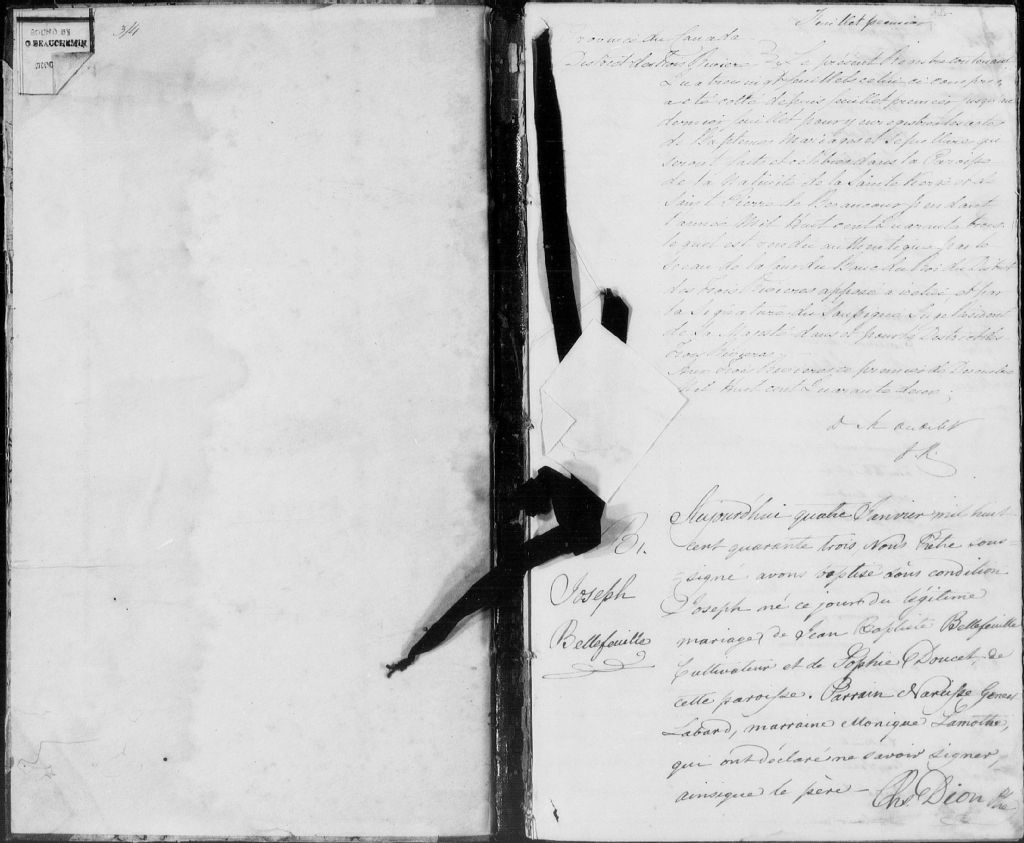 BOUND BY
O BEAUCHEMIN
3/4
Feuillet premier
Province du Canada
District des Trois Rivières Le présent Registre contenant
Quatrevingt feuillets celui ci compris,
a été cotté depuis feuillet premier jusqu'au
dernier feuillet pour y enregistrer les actes
de Baptemes Mariages et Sepultures qui
seront faits et célébrés dans la Paroisse
de la Nativité de la Sainte Vierge et de
Saint Pierre de Becancour pendant
l'année Mil Huit cent Quarante trois,
lequel est rendu authentique par le
Sceau de la Cour du Banc du Roi du District
des trois Rivieres apposé à icelui et par
la Signature du
de Sa Majesté dans et pour le District des
Trois Rivieres
Aux Trois Rivieres ce premier de Decembre
Mil Huit cent Quarante deux;
B1.
Joseph
Bellefeuille
Aujourd'hui quatre Janvier mil huit
cent quarante trois Nous Prêtre sous-
signé avons baptisé sous condition
Joseph né ce jour du légitime
mariage de Jean Baptiste Bellefeuille
Cultivateur et de Sophie Doucet, de
cette paroisse. Parrain Narcisse
Labard, marraine Monique Lamothe,
qui ont déclaré ne savoir signer,
ainsique le père -
Chs Dion Ptre